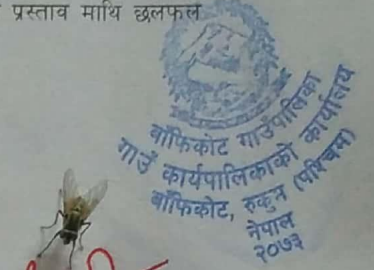 प्रस्ताव माथि छलफल
बाँफिकोट गाउँपालिका
गाउँ कार्यपालिकाको कार्यालय
बाँफिकोट, रुकुम (पश्चिम)
नेपाल
२०७३